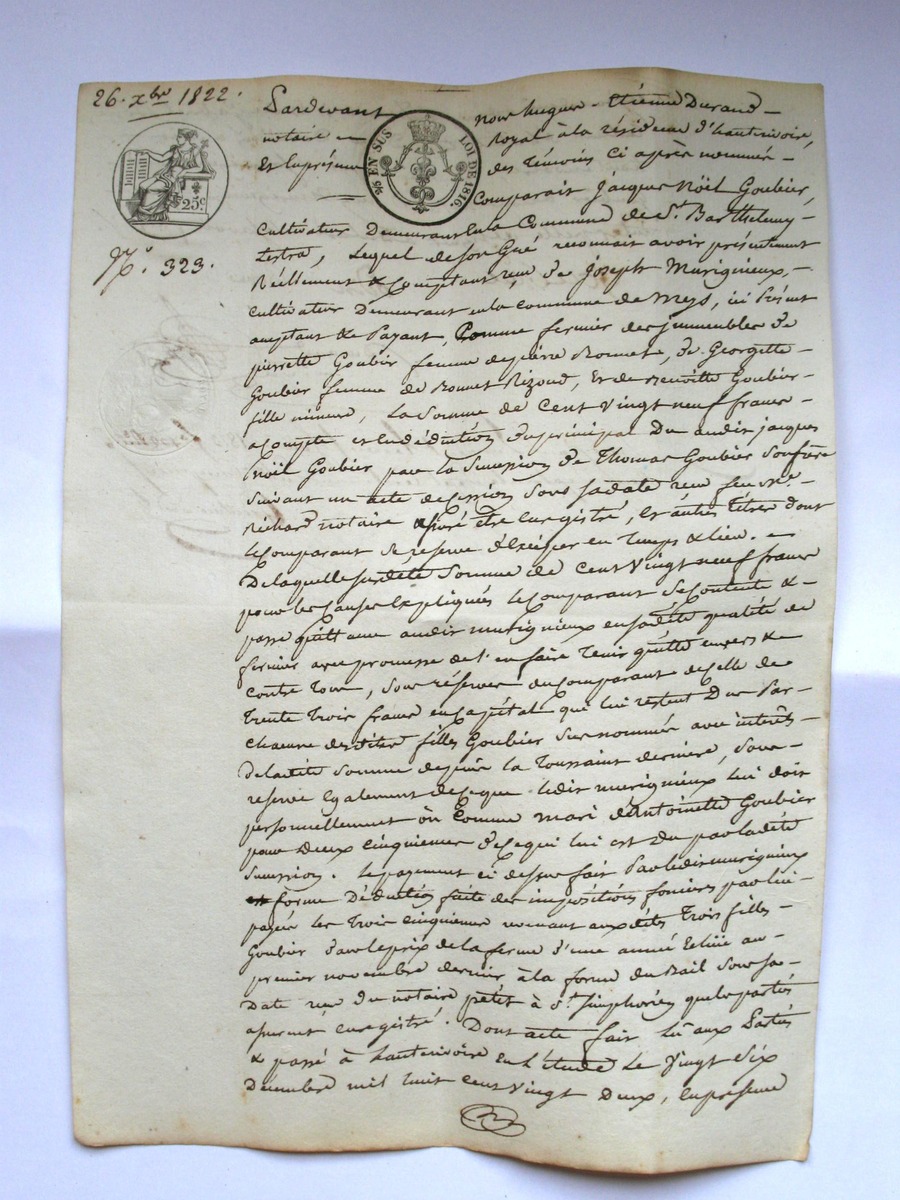 26. xbre 1822.
Pardevant nous hugues - Etienne Durand -
notaire royal à la résidence d'hauterivoire,
Et En présence des témoins ci après nommés -
25c.
25 EN SUS LOI DE 1816.
Comparait jacques Nöël Goubier,
Cultivateur Demeurant En la Commune de St. Barthelemy -
Lestra, Lequel de son Gré reconnait avoir présentement
No. 323.
Réellement & Comptant reçu, de joseph Murigneux, -
Cultivateur Demeurant en la commune de Meys, ici Présent
acceptant & Payant, Comme fermier des immeubles de
pierrette Goubier femme de pierre Bonnet, de Georgette -
Goubier femme de Bonnet Rizoud, Et de Benoitte Goubier
fille mineure, La Somme de Cent Vingt neuf francs -
acompte et En déduction du principal Du audit jacques
Nöël Goubier par la Succession de Thomas Goubier Son frère
Suivant un acte de cession Sous sa date reçu feu Me.
Richard notaire assuré être Enregistré, Et autres titres dont
le Comparant Se reserve d'Exciper en Temps & lieu. -
De laquelle susdite Somme de Cent Vingt neuf francs
pour les causes Expliquées le Comparant Se Contente & -
passe quittance audit murigneux en sa dite qualité de
fermier avec promesse de l'en faire Tenir quitte envers &
contre Tous, Sous réserve du Comparant de celle de
Trente Trois francs en Capital que lui restent Dus Par -
Chacune des dites filles Goubier Sus nommées avec intérêts
de la dite Somme depuis la Toussaint dernière, Sous -
reserve Egalement de ce que ledit murigneux lui doit
personnellement ou Comme mari d'antoinette Goubier
pour Deux Cinquiemes de ce qui lui est Du par la dite
Succession. Le payement ci dessus fait Par ledit murigneux
forme Déduction faite des impositions foncières par lui
payées les Trois Cinquiemes revenant aux dites Trois filles -
Goubier dans le prix de la ferme d'une année Echue au -
premier novembre dernier à la forme du Bail Sous sa -
Date reçu Du notaire petit à St. Simphorien que les parties
assurent enregistré. Dont acte fait Lu aux Parties
& passé à hauterivoire En l'étude Le Vingt Six
Décembre mil huit Cent Vingt Deux, En présence